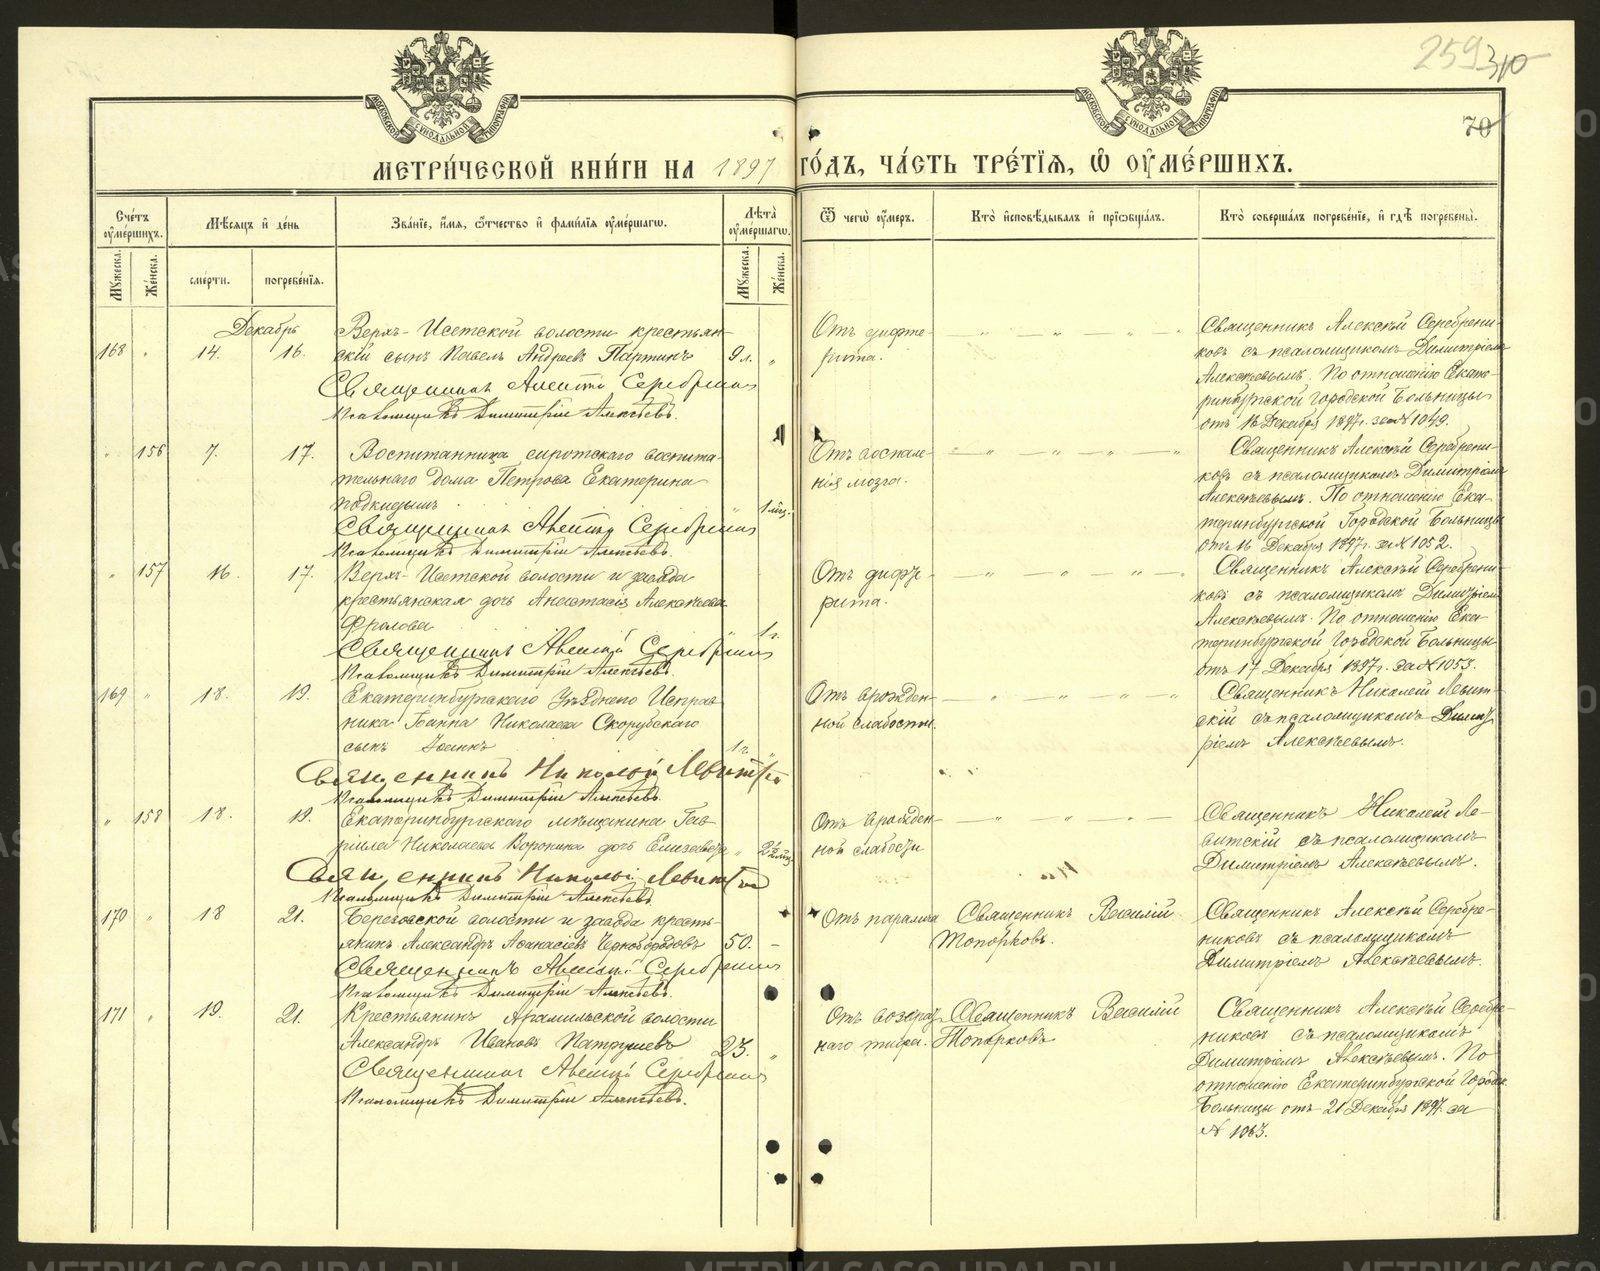 259 310
70
МОСКОВСКОЙ СѴНОДАЛЬНОЙ ТИПОГРАФІИ
МОСКОВСКОЙ СѴНОДАЛЬНОЙ ТИПОГРАФІИ
МЕТРИ́ЧЕСКОЙ КНИ́ГИ НА 1897 ГО́ДЪ, ЧА́СТЬ ТРЕ́ТІЯ, Ѡ҆ ОУ҆МЕ́РШИХЪ.
Сче́тъ оу҆ме́ршихъ.
Мѣсяцъ и҆ де́нь
Зва́ніе, и҆мя, ѻ҆́тчество и҆ фами́лія оу҆ме́ршагѡ.
Лѣта̀ оу҆ме́ршагѡ.
Ѿ чегѡ̀ оу҆́меръ.
Кто̀ и҆сповѣ́дывалъ и҆ прїѡбща́лъ.
Кто̀ соверша́лъ погребе́ніе, и҆ гдѣ̀ погребены̀.
Мꙋ́жеска. Же́нска.
сме́рти. погребе́нія.
Мꙋ́жеска. Же́нска.
Декабрь
168 " 14. 16. Верхъ-Исетской волости крестьян-
скій сынъ Павелъ Андреевъ Партинъ 9 л. "
Священникъ Алексѣй Серебренник
Псаломщикъ Димитрій Алексѣевъ.
Отъ дифте-
рита.
Священникъ Алексѣй Серебрени-
ковъ съ псаломщикомъ Димитріемъ
Алексѣевымъ. По отношенію Екате-
ринбургской Городской Больницы
отъ 16 Декабря 1897 г. за № 1049.
" 156 7. 17. Воспитанница сиротскаго воспита-
тельнаго дома Петрова Екатерина
подкидышъ " 1 мѣс.
Священникъ Алексѣй Серебренник
Псаломщикъ Димитрій Алексѣевъ.
Отъ воспале-
нія мозга.
Священникъ Алексѣй Серебрени-
ковъ съ псаломщикомъ Димитріемъ
Алексѣевымъ. По отношенію Ека-
теринбургской Городской Больницы
отъ 16 Декабря 1897 г. за № 1052.
" 157 16. 17. Верхъ-Исетской волости и завода
крестьянская дочь Анастасія Алексѣева
Фролова " 1 г.
Священникъ Алексѣй Серебренник
Псаломщикъ Димитрій Алексѣевъ.
Отъ дифте-
рита.
Священникъ Алексѣй Серебрени-
ковъ съ псаломщикомъ Димитріемъ
Алексѣевымъ. По отношенію Ека-
теринбургской Городской Больницы
отъ 17 Декабря 1897 г. за № 1053.
169 " 18. 19. Екатеринбургскаго Уѣзднаго Исправ-
ника Іоанна Николаева Скорубскаго
сынъ Іоаннъ 1 г. "
Священникъ Николай Левитскій
Псаломщикъ Димитрій Алексѣевъ.
Отъ врожден-
ной слабости.
Священникъ Николай Левит-
скій съ псаломщикомъ Димит-
ріемъ Алексѣевымъ.
" 158 18. 19. Екатеринбургскаго мѣщанина Гав-
ріила Николаева Воронина дочь Елизавета " 2½ мѣс.
Священникъ Николай Левитскій
Псаломщикъ Димитрій Алексѣевъ.
Отъ врожден-
ной слабости
Священникъ Николай Ле-
витскій съ псаломщикомъ
Димитріемъ Алексѣевымъ.
170 " 18 21. Березовской волости и завода кресть-
янинъ Александръ Аѳанасіевъ Чернобородовъ 50. -
Священникъ Алексѣй Серебренник
Псаломщикъ Димитрій Алексѣевъ.
Отъ паралича
Священникъ Василій
Топорковъ.
Священникъ Алексѣй Серебре-
никовъ съ псаломщикомъ
Димитріемъ Алексѣевымъ.
171 " 19. 21. Крестьянинъ Арамильской волости
Александръ Ивановъ Патрушевъ 23. "
Священникъ Алексѣй Серебренник
Псаломщикъ Димитрій Алексѣевъ.
Отъ возврат-
наго тифа.
Священникъ Василій
Топорковъ
Священникъ Алексѣй Серебре-
никовъ съ псаломщикомъ
Димитріемъ Алексѣевымъ. По
отношенію Екатеринбургской Городск.
Больницы отъ 21 Декабря 1897 г. за
№ 1063.
METRIKI.GASO-URAL.RU
METRIKI.GASO-URAL.RU
METRIKI.GASO